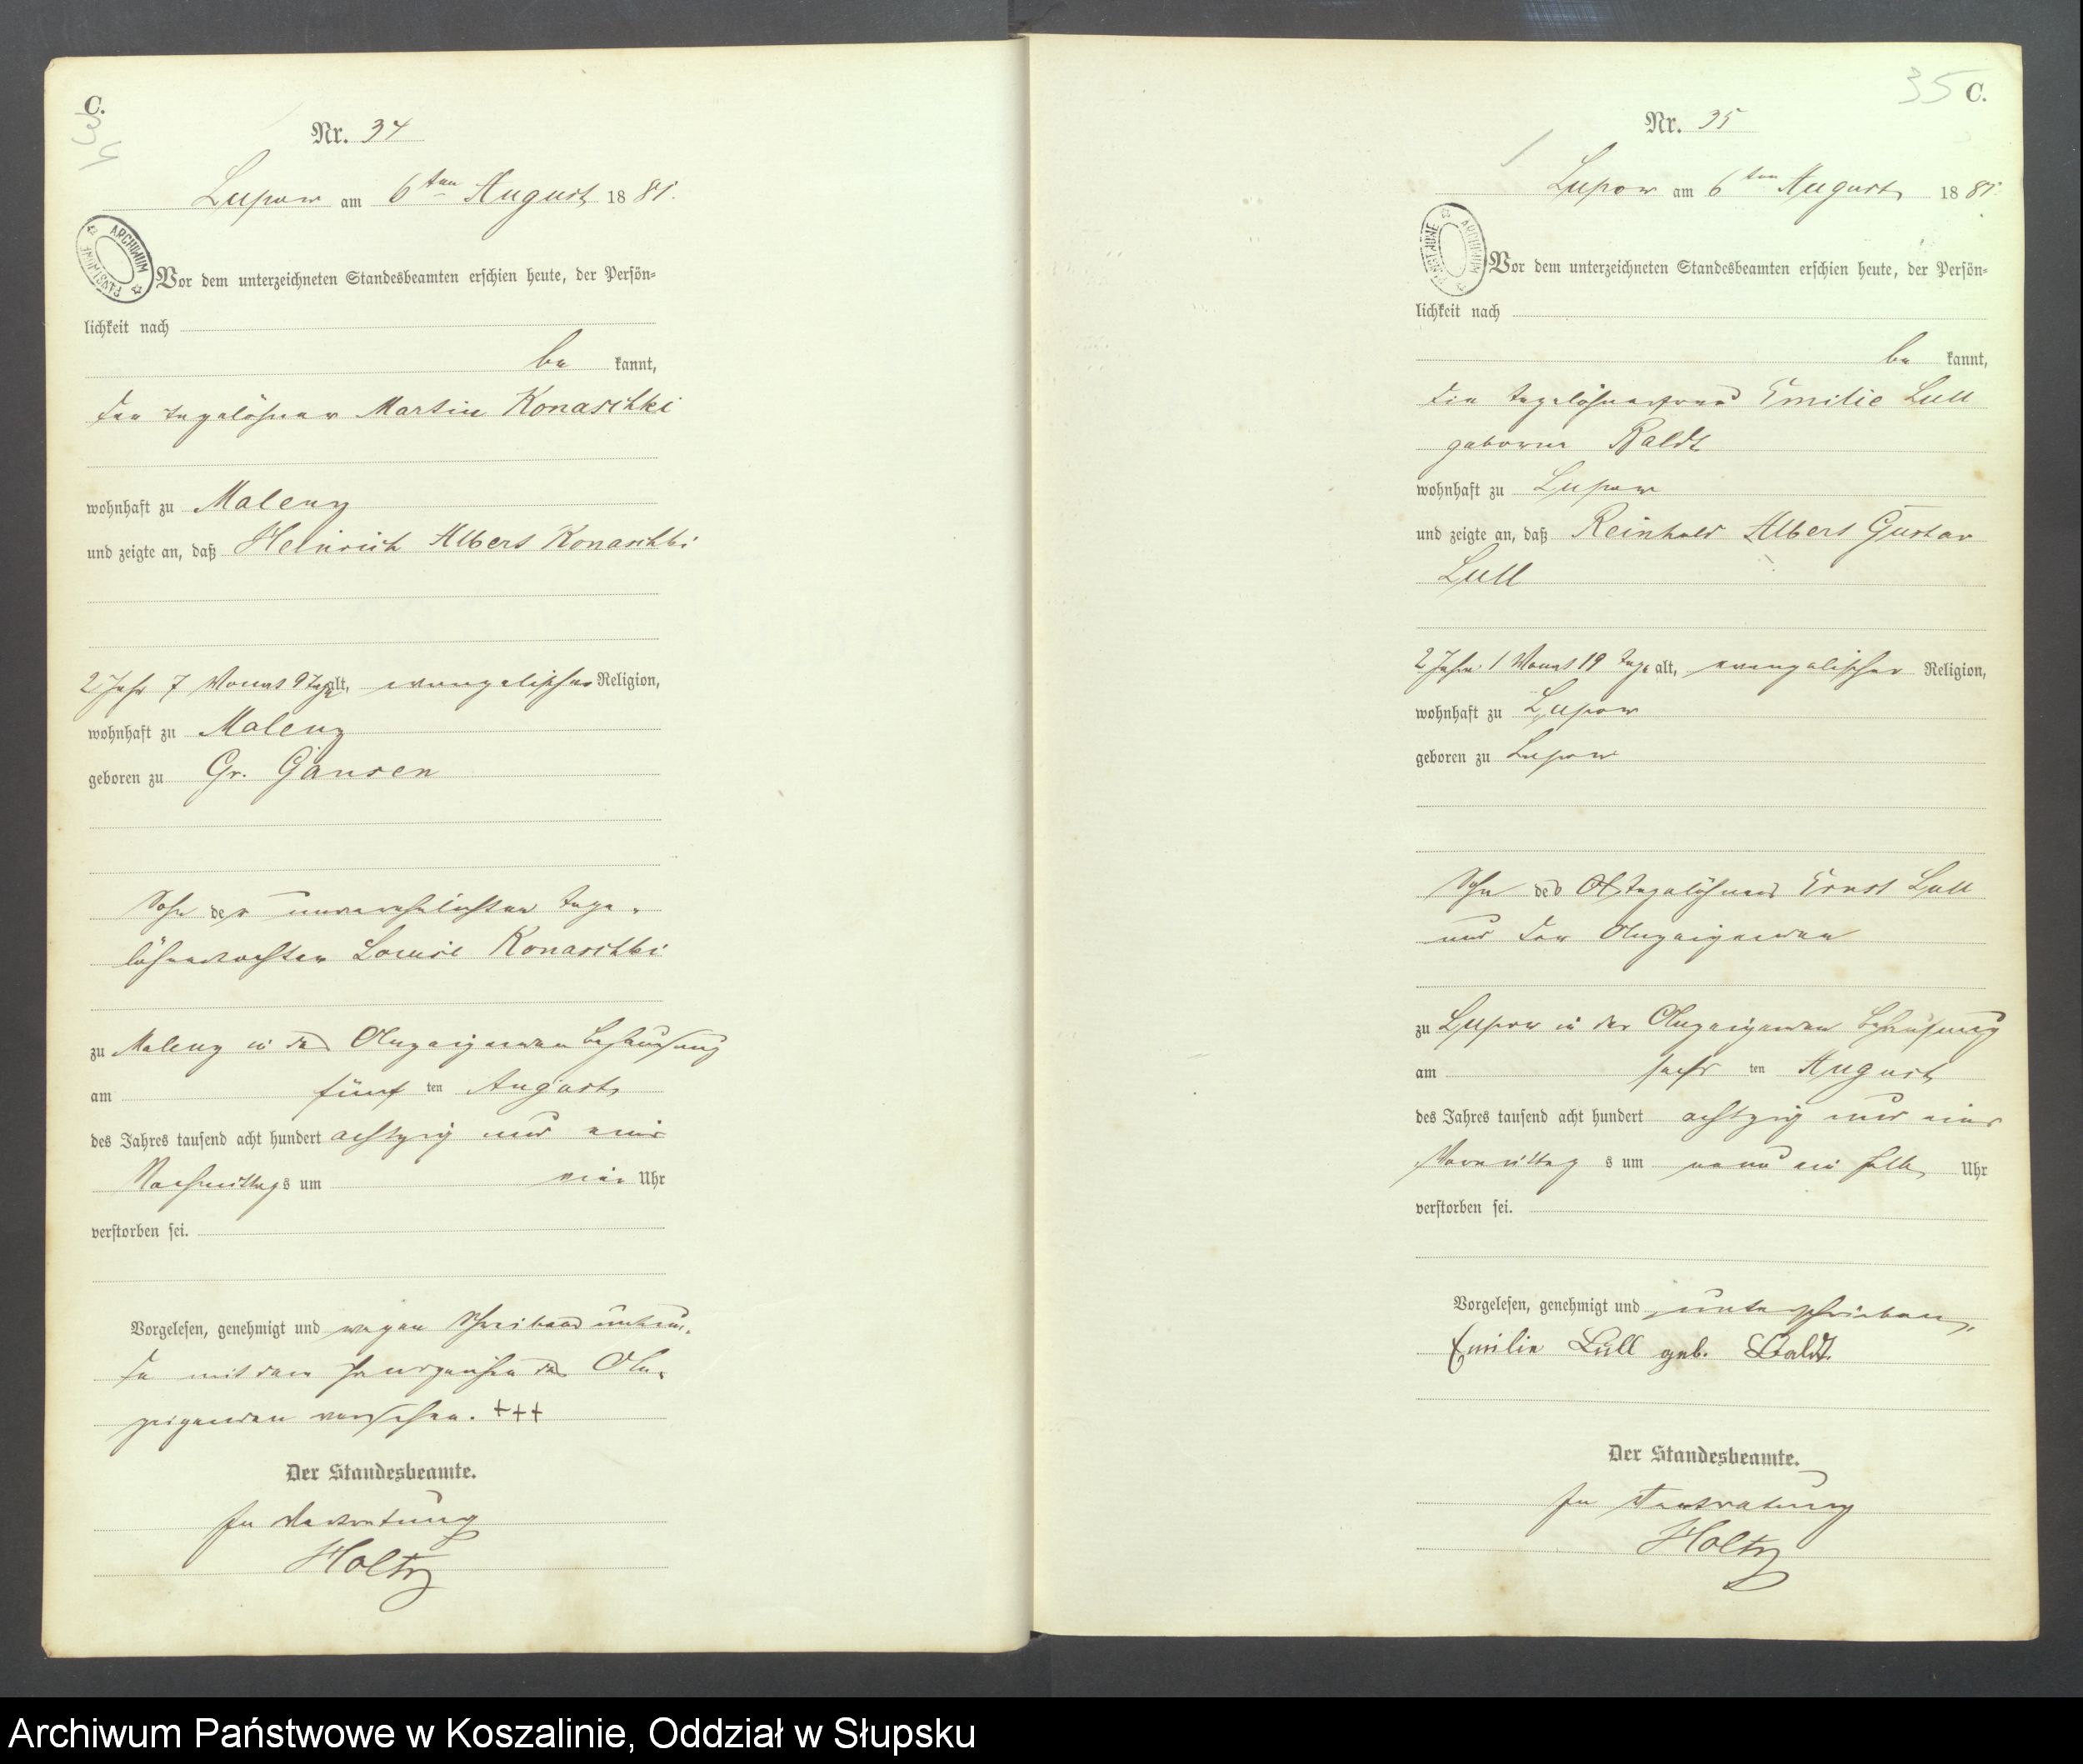 C.
34
Nr. 34
Lupow am 6ten August 1881.
ARCHIWUM PAŃSTWOWE
Vor dem unterzeichneten Standesbeamten erschien heute, der Persön-
lichkeit nach
be kannt,
der Tagelöhner Martin Konaschki
wohnhaft zu Malenz
und zeigte an, daß Heinrich Albert Konaschki
2 Jahr 7 Monat 9 Tage alt, evangelischer Religion,
wohnhaft zu Malenz
geboren zu Gr. Gansen
Sohn der unverehelichten Tage-
löhnertochter Louise Konaschki
zu Malenz in des Anzeigenden Behausung
am fünf ten August
des Jahres tausend acht hundert achtzig und eins
Nachmittags um ein Uhr
verstorben sei.
Vorgelesen, genehmigt und wegen Schreibens unkun-
de mit dem Handzeichen des An-
zeigenden versehen. +++
Der Standesbeamte.
In Vertretung
Holtz
35 C.
Nr. 35
Lupow am 6ten August 1881.
ARCHIWUM PAŃSTWOWE
Vor dem unterzeichneten Standesbeamten erschien heute, der Persön-
lichkeit nach
be kannt,
die Tagelöhnerfrau Emilie Lull
geborne Raldt
wohnhaft zu Lupow
und zeigte an, daß Reinhold Albert Gustav
Lull
2 Jahr 1 Monat 19 Tage alt, evangelischer Religion,
wohnhaft zu Lupow
geboren zu Lupow
Sohn des Tagelöhners Ernst Lull
und der Anzeigenden
zu Lupow in der Anzeigenden Behausung
am sechs ten August
des Jahres tausend acht hundert achtzig und eins
Vormittag s um neun ein halb Uhr
verstorben sei.
Vorgelesen, genehmigt und unterschrieben
Emilie Lüll geb.
Der Standesbeamte.
In Vertretung
Holtz
Archiwum Państwowe w Koszalinie, Oddział w Słupsku